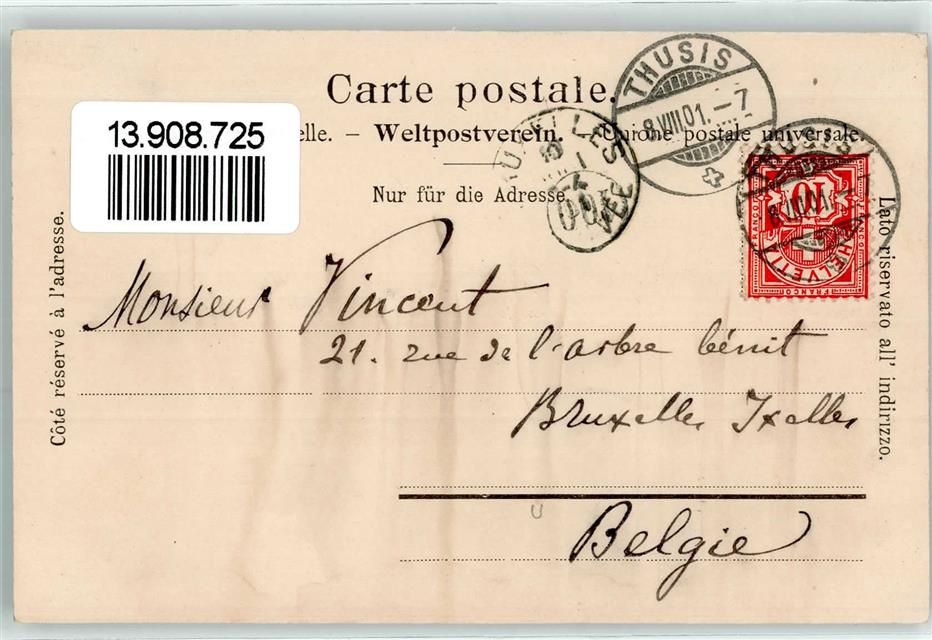 Carte postale.
13.908.725
elle. – Weltpostverein. – Unione postale universale.
Nur für die Adresse.
THUSIS
8.VIII.01. –7
THUSIS
8.VIII.01
10
HELVETIA
FRANCO
Côté réservé à l'adresse.
Lato riservato all' indirizzo.
Monsieur Vincent
21. rue de l'arbre bénit
Bruxelles Ixelles
Belgie